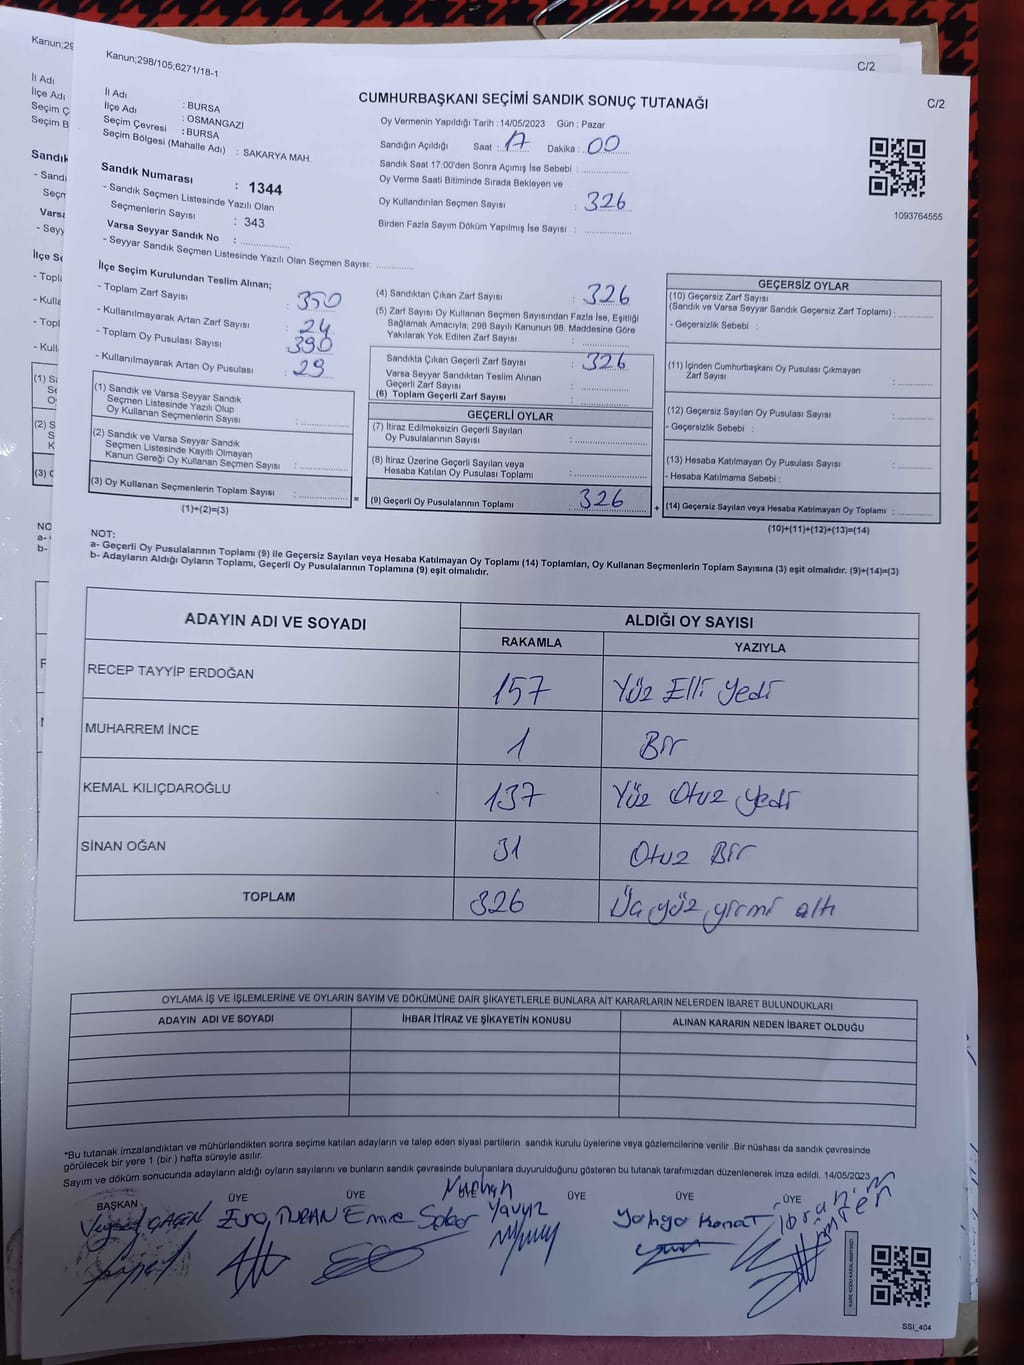 Kanun;298/105;6271/18-1
C/2
C/2
CUMHURBAŞKANI SEÇİMİ SANDIK SONUÇ TUTANAĞI
İl Adı : BURSA
İlçe Adı : OSMANGAZİ
Seçim Çevresi : BURSA
Seçim Bölgesi (Mahalle Adı) : SAKARYA MAH.
Oy Vermenin Yapıldığı Tarih : 14/05/2023 Gün : Pazar
Sandığın Açıldığı Saat : 17 Dakika : 00
Sandık Saat 17:00'den Sonra Açımış İse Sebebi :
Oy Verme Saati Bitiminde Sırada Bekleyen ve
Oy Kullandırılan Seçmen Sayısı : 326
Birden Fazla Sayım Döküm Yapılmış İse Sayısı :
1093764555
Sandık Numarası : 1344
- Sandık Seçmen Listesinde Yazılı Olan
Seçmenlerin Sayısı : 343
Varsa Seyyar Sandık No :
- Seyyar Sandık Seçmen Listesinde Yazılı Olan Seçmen Sayısı:
İlçe Seçim Kurulundan Teslim Alınan;
- Toplam Zarf Sayısı : 350
- Kullanılmayarak Artan Zarf Sayısı : 24
- Toplam Oy Pusulası Sayısı : 390
- Kullanılmayarak Artan Oy Pusulası : 29
(1) Sandık ve Varsa Seyyar Sandık
Seçmen Listesinde Yazılı Olup
Oy Kullanan Seçmenlerin Sayısı :
(2) Sandık ve Varsa Seyyar Sandık
Seçmen Listesinde Kayıtlı Olmayan
Kanun Gereği Oy Kullanan Seçmen Sayısı :
(3) Oy Kullanan Seçmenlerin Toplam Sayısı :
(1)+(2)=(3)
(4) Sandıktan Çıkan Zarf Sayısı : 326
(5) Zarf Sayısı Oy Kullanan Seçmen Sayısından Fazla İse, Eşitliği
Sağlamak Amacıyla, 298 Sayılı Kanunun 98. Maddesine Göre
Yakılarak Yok Edilen Zarf Sayısı :
Sandıkta Çıkan Geçerli Zarf Sayısı : 326
Varsa Seyyar Sandıktan Teslim Alınan
Geçerli Zarf Sayısı :
(6) Toplam Geçerli Zarf Sayısı :
GEÇERLİ OYLAR
(7) İtiraz Edilmeksizin Geçerli Sayılan
Oy Pusulalarının Sayısı :
(8) İtiraz Üzerine Geçerli Sayılan veya
Hesaba Katılan Oy Pusulası Toplamı :
= (9) Geçerli Oy Pusulalarının Toplamı : 326 +
GEÇERSİZ OYLAR
(10) Geçersiz Zarf Sayısı
(Sandık ve Varsa Seyyar Sandık Geçersiz Zarf Toplamı) :
- Geçersizlik Sebebi :
(11) İçinden Cumhurbaşkanı Oy Pusulası Çıkmayan
Zarf Sayısı :
(12) Geçersiz Sayılan Oy Pusulası Sayısı :
- Geçersizlik Sebebi :
(13) Hesaba Katılmayan Oy Pusulası Sayısı :
- Hesaba Katılmama Sebebi :
(14) Geçersiz Sayılan veya Hesaba Katılmayan Oy Toplamı :
(10)+(11)+(12)+(13)=(14)
NOT:
a- Geçerli Oy Pusulalarının Toplamı (9) ile Geçersiz Sayılan veya Hesaba Katılmayan Oy Toplamı (14) Toplamları, Oy Kullanan Seçmenlerin Toplam Sayısına (3) eşit olmalıdır. (9)+(14)=(3)
b- Adayların Aldığı Oyların Toplamı, Geçerli Oy Pusulalarının Toplamına (9) eşit olmalıdır.
ADAYIN ADI VE SOYADI ALDIĞI OY SAYISI
RAKAMLA YAZIYLA
RECEP TAYYİP ERDOĞAN 157 Yüz Elli Yedi
MUHARREM İNCE 1 Bir
KEMAL KILIÇDAROĞLU 137 Yüz Otuz Yedi
SİNAN OĞAN 31 Otuz Bir
TOPLAM 326 Üçyüz yirmi altı
OYLAMA İŞ VE İŞLEMLERİNE VE OYLARIN SAYIM VE DÖKÜMÜNE DAİR ŞİKAYETLERLE BUNLARA AİT KARARLARIN NELERDEN İBARET BULUNDUKLARI
ADAYIN ADI VE SOYADI İHBAR İTİRAZ VE ŞİKAYETİN KONUSU ALINAN KARARIN NEDEN İBARET OLDUĞU
*Bu tutanak imzalandıktan ve mühürlendikten sonra seçime katılan adayların ve talep eden siyasi partilerin sandık kurulu üyelerine veya gözlemcilerine verilir .Bir nüshası da sandık çevresinde
görülecek bir yere 1 (bir ) hafta süreyle asılır.
Sayım ve döküm sonucunda adayların aldığı oyların sayılarını ve bunların sandık çevresinde bulunanlara duyurulduğunu gösteren bu tutanak tarafımızdan düzenlenerek imza edildi. 14/05/2023
BAŞKAN ÜYE ÜYE ÜYE ÜYE ÜYE ÜYE
Esra TURAN Emre Yavuz Yahya Kanat İbrahim
KARE KODU KARALAMAYINIZ!
SSI_404